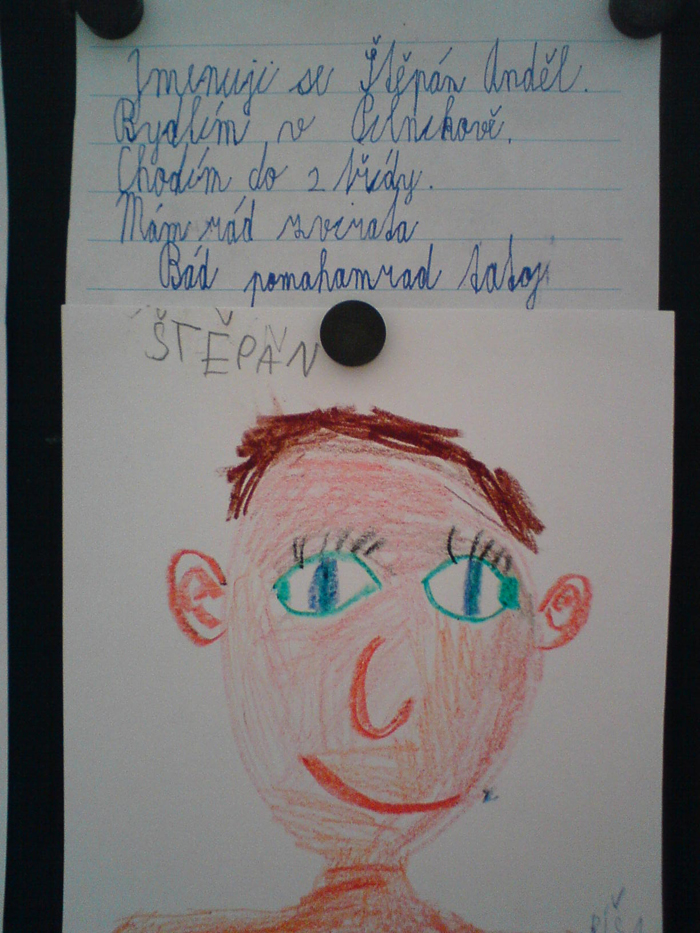 Jmenuji se Štěpán Anděl.
Bydlím v Pilníkově.
Chodím do 2 třídy.
Mám rád zvirata
Bád pomahamrad tatoj
ŠTĚPÁN